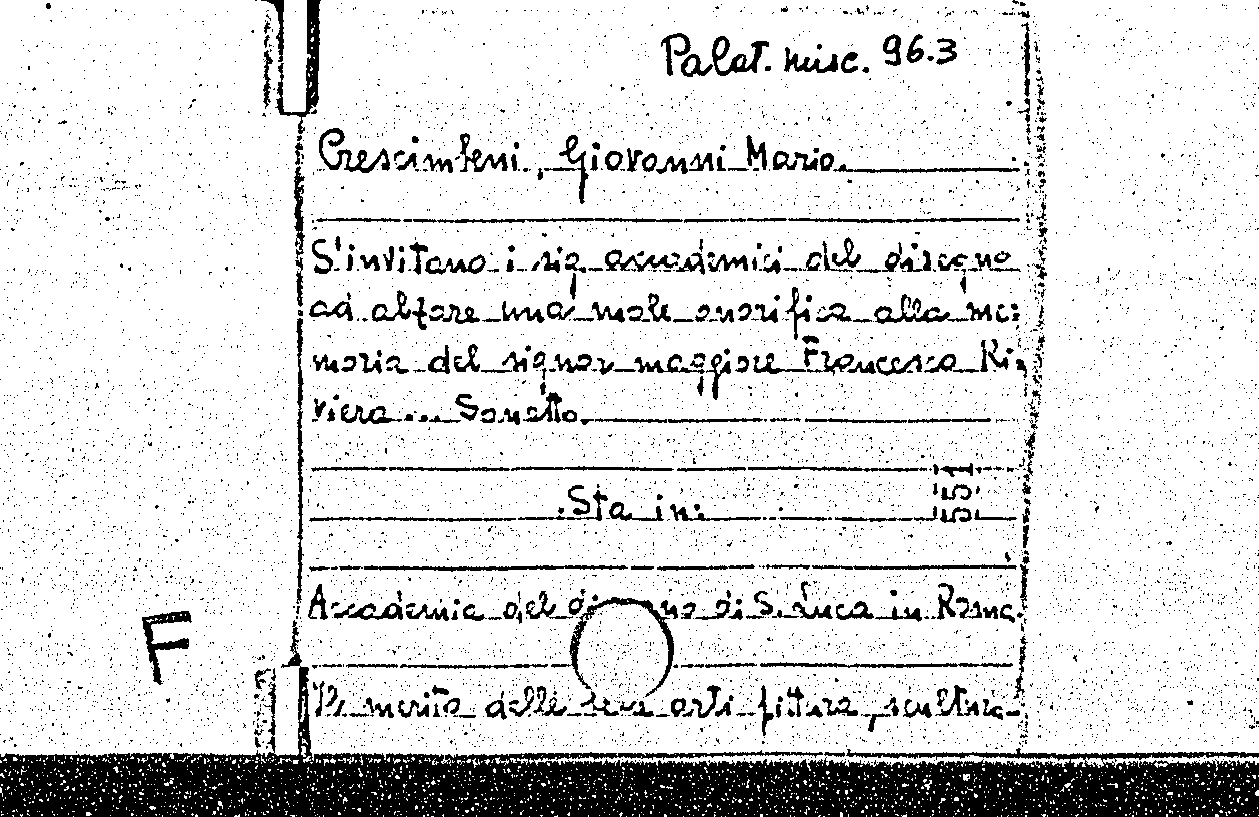 Palat. misc. 96.3
Crescimbeni, Giovanni Mario.
S'invitano i sig. accademici del disegno
ad alzare una mole onorifica alla me:
moria del signor maggiore Francesco Ri:
viera... Sonetto.
Sta in:
151
Accademia del disegno di S. Luca in Roma.
F
Il merito delle belle arti pittura, scultura